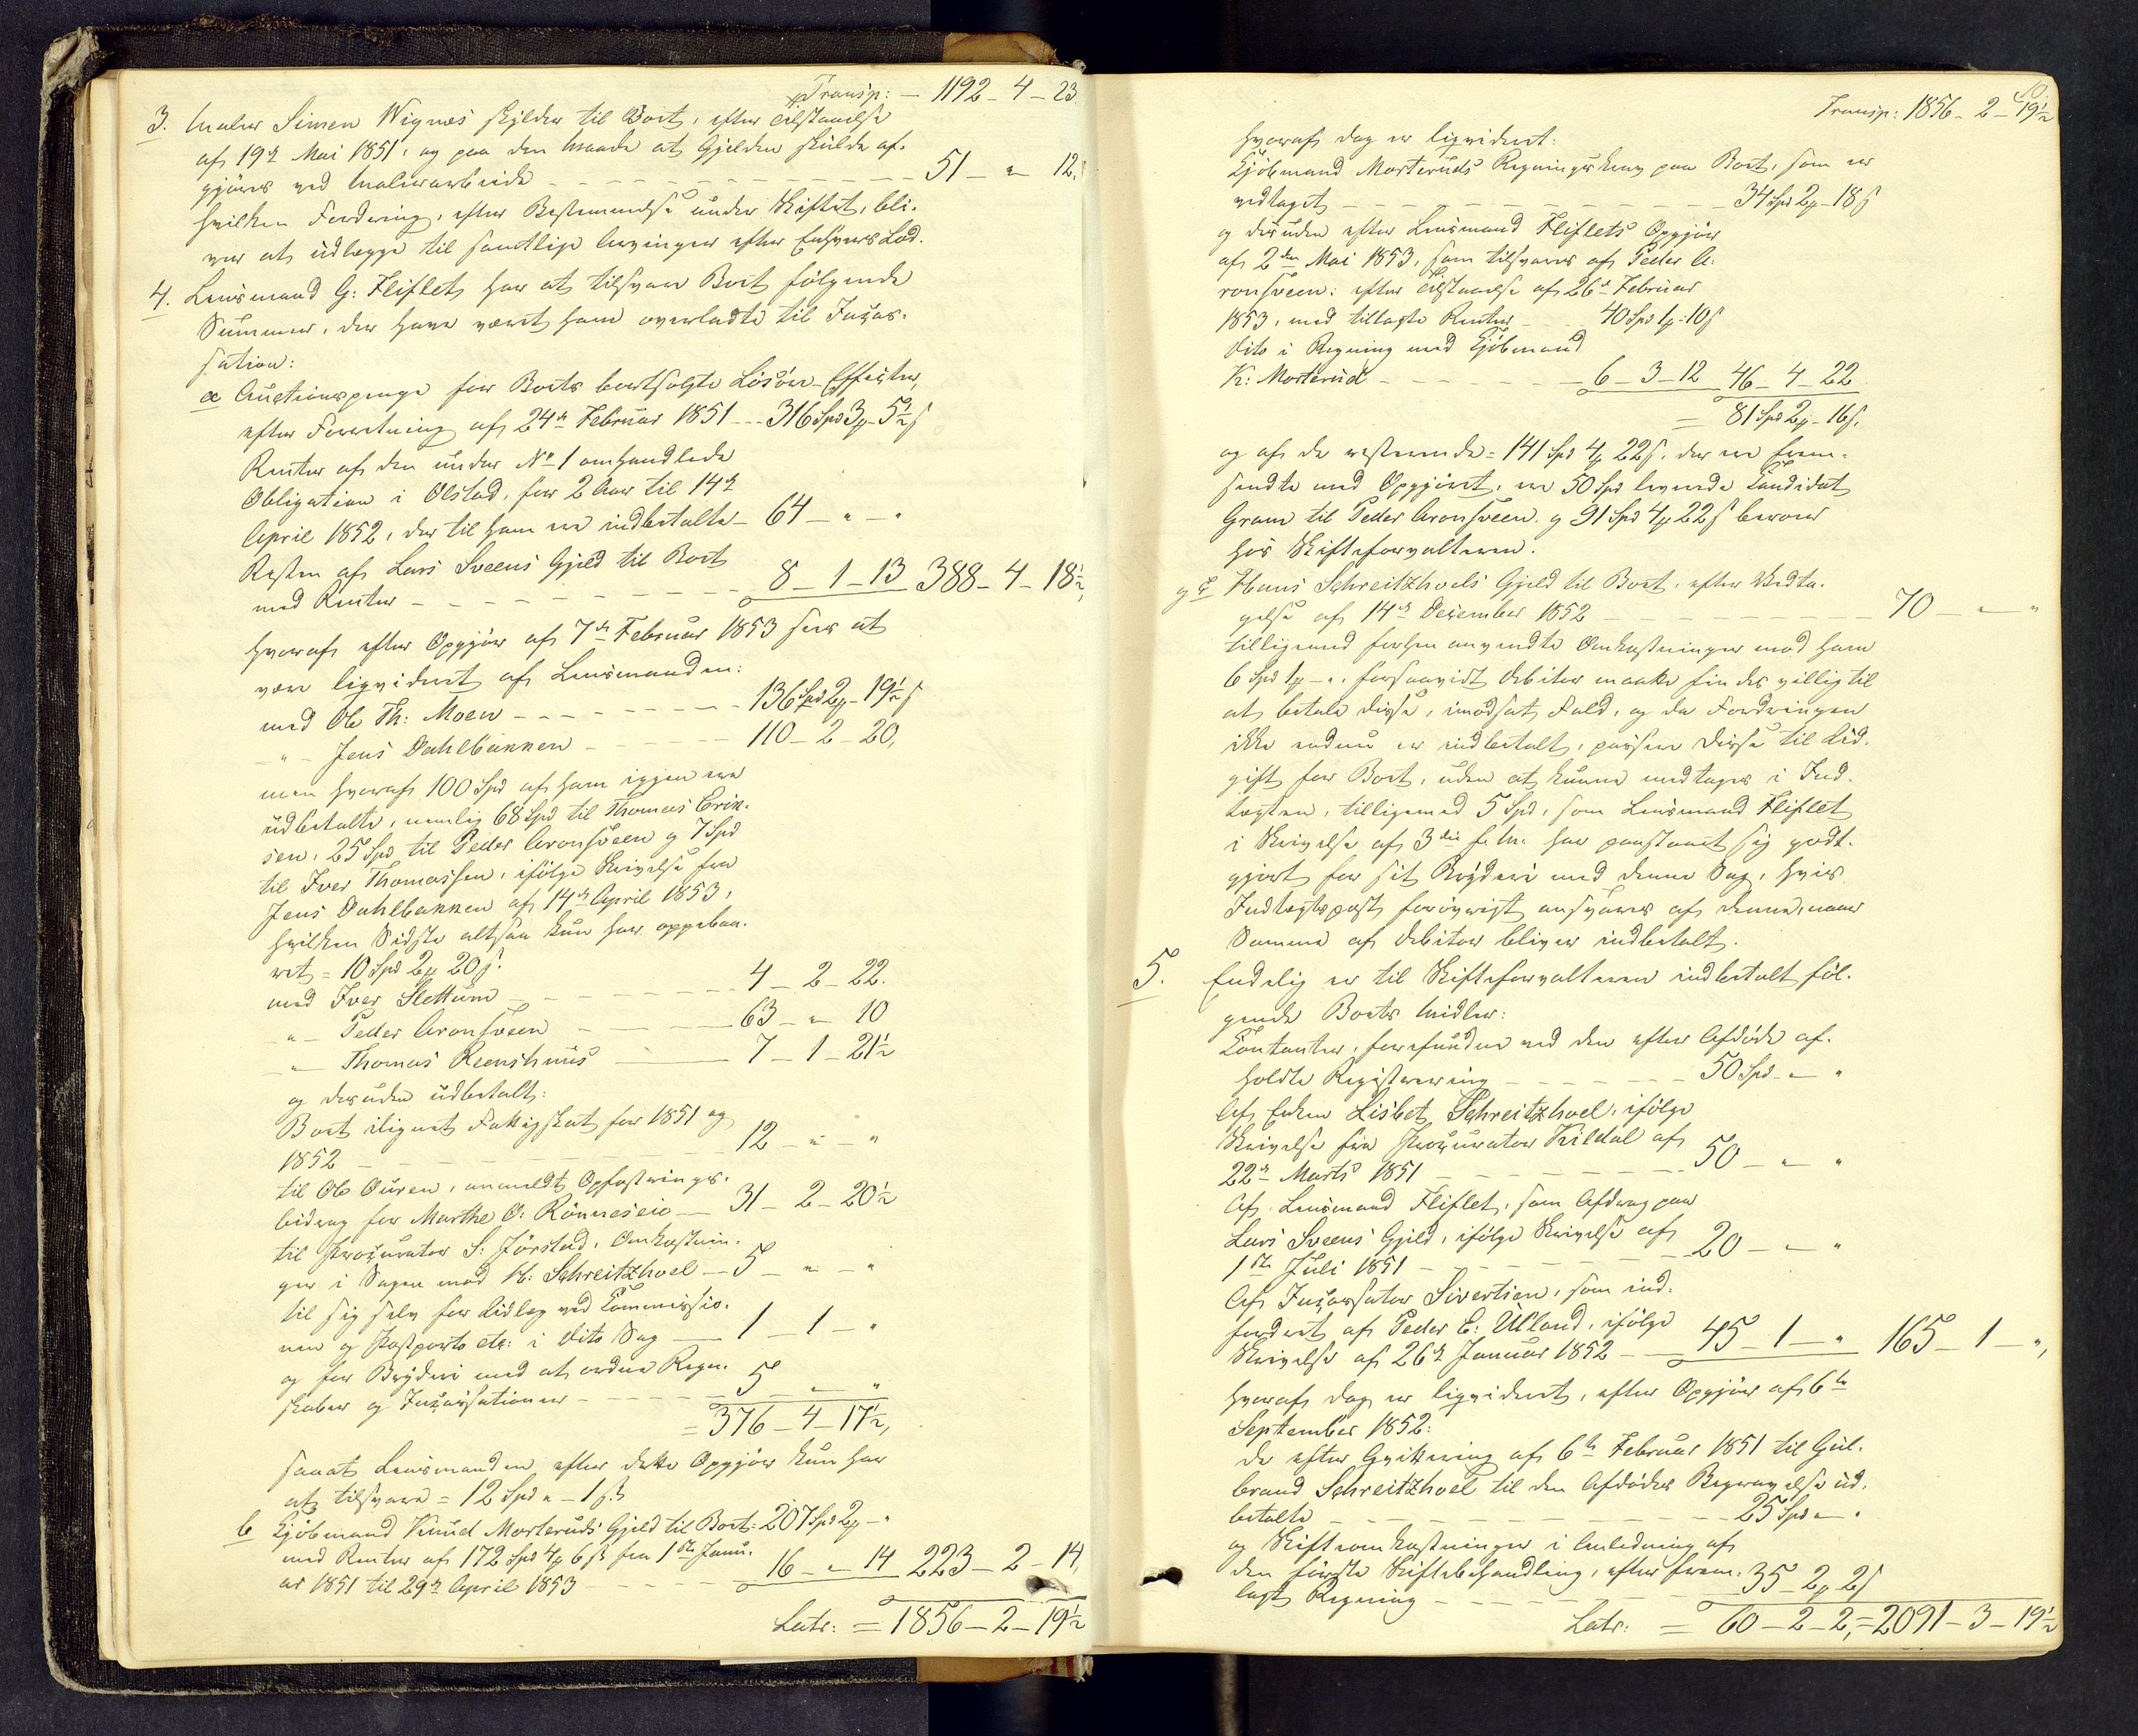 Transp: — 1192 – 4 – 23.
3. Maler Simen Wignæs skylder til Boet, efter Tilstaaelse
af 19de Mai 1851, og paa den Maade at Gjelden skulde af-
gjøres ved Malerarbeide — 51 – " 12.
hvilken Fordring, efter Bestemmelse under Skiftet, bli-
ver at udlægge til samtlige Arvinger efter Enhvers Lod.
4. Lensmand G: Fliflet har at tilsvare Boet følgende
Summer, der have været ham overladte til Incas-
sation:
a Auctionspenge for Boets bortsolgte Løsøre-Effecter,
efter Forretning af 24de Februar 1851 — 316 Spd 3 – 5½ s
Renter af den under No 1 omhandlede
Obligation i Olstad, for 2 Aar til 14de
April 1852, der til ham ere indbetalte – 64 – " – "
Resten af Lars Sveens Gjeld til Boet
med Renter — 8 – 1 – 13 388 – 4 – 18½,
hvoraf efter Opgjør af 7de Februar 1853 sees at
være liqvideret af Lensmanden:
med Ole Th: Moen — 136 Spd 2 – 19½ s
– " – Jens Dahlbakken — 110 – 2 – 20,
men hvoraf 100 Spd af ham igjen ere
udbetalte, nemlig 68 Spd til Thomas Erik-
sen, 25 Spd til Peder Aronsveen og 7 Spd
til Iver Thomassen, ifølge Skrivelse fra
Jens Dahlbakken af 14de April 1853,
hvilken Sidste altsaa kun har oppebaa-
ret = 10 Spd 2 20 s.
med Iver Slettum — 4 – 2 – 22.
– " – Peder Aronsveen — 63 – " 10
– " – Thomas Reenshuus — 7 – 1 – 21½
og desuden udbetalt:
Boet ilignet Fattigskat for 1851 og
1852 — 12 – " – "
til Ole Ouren, anmeldt Opfostrings-
bidrag for Marthe O: Rönneseie — 31 – 2 – 20½
til Procurator S: Jörstad, Omkostnin-
ger i Sagen mod H: Schreitzhoel — 5 – " – "
til sig selv for Udlæg ved Commissio-
nen og Postporto etc: i dito Sag — 1 – 1 – "
og for Bryderi med at ordne Regn-
skaber og Incassationer — 5 – " – "
= 376 – 4 – 17½,
saaat Lensmanden efter dette Opgjør kun har
at tilsvare = 12 Spd " – 1 s
b Kjöbmand Knud Morteruds Gjeld til Boet = 207 Spd 2 – "
med Renter af 172 Spd 4 6 s fra 1ste Janu-
ar 1851 til 29de April 1853 — 16 – " 14 223 – 2 – 14,
Latr: = 1856 – 2 – 19½
10.
Transp: 1856 – 2 – 19½
hvoraf dog er liqvideret:
Kjöbmand Morteruds Regningskrav paa Boet, som er
vedtaget — 34 Spd 2 – 18 s
og desuden efter Lensmand Fliflets Opgjör
af 2den Mai 1853, som tilsvares af Peder A-
ronsveen: efter Tilstaaelse af 26de Februar
1853, med tillagte Renter — 40 Spd 1 – 10 s
dito i Regning med Kjöbmand
K: Morterud — 6 – 3 – 12 46 – 4 – 22
= 81 Spd 2 – 16 s.
og af de resterende = 141 Spd 4 22 s. der ere frem-
sendte med Opgjöret, ere 50 Spd leverede Candidat
Gram til Peder Aronsveen, og 91 Spd 4 22 s beroer
hos Skifteforvalteren.
Hans Schreitzhoels Gjeld til Boet, efter Vedta-
gelse af 14de December 1852 — 70 – " – "
tilligemed forhen anvendte Omkostninger mod ham
6 Spd 1 – ", forsaavidt Debitor maatte findes villig til
at betale disse, imodsat Fald, og da Fordringen
ikke endnu er indbetalt, passere disse til Ud-
gift for Boet, uden at kunne medtages i Ind-
tægten, tilligemed 5 Spd, som Lensmand Fliflet
i Skrivelse af 3die f. M. har paastaaet sig godt-
gjort for sit Bryderi med denne Sag, hvis
Indtægtspost forövrigt ansvares af denne, naar
Samme af Debitor bliver indbetalt.
5. Endelig er til Skifteforvalteren indbetalt föl-
gende Boets Midler:
Contanter, forefundne ved den efter Afdöde af-
holdte Registrering — 50 Spd – " "
Af Enken Lisbet Schreitzhoel, ifölge
Skrivelse fra Procurator Kildal af
22de Marts 1851 — 50 – " – "
Af Lensmand Fliflet, som Afdrag paa
Lars Sveens Gjeld, ifölge Skrivelse af
1ste Juli 1851 — 20 – " – "
Af Incassator Sivertsen, som ind-
fordret af Peder E: Ulland, ifölge
Skrivelse af 26de Januar 1852 — 45 – 1 – " 165 – 1 – ",
hvoraf dog er liqvideret, efter Opgjör af 6te
September 1852:
de efter Qvittering af 6te Februar 1851 til Gul-
brand Schreitzhoel til den Afdödes Begravelse ud-
betalte — 25 Spd – " "
og Skifteomkostninger i Anledning af
den förste Skiftebehandling, efter frem-
lagt Regning — 35 – 2 2 s
Latr: = 60 – 2 – 2, = 2091 – 3 – 19½